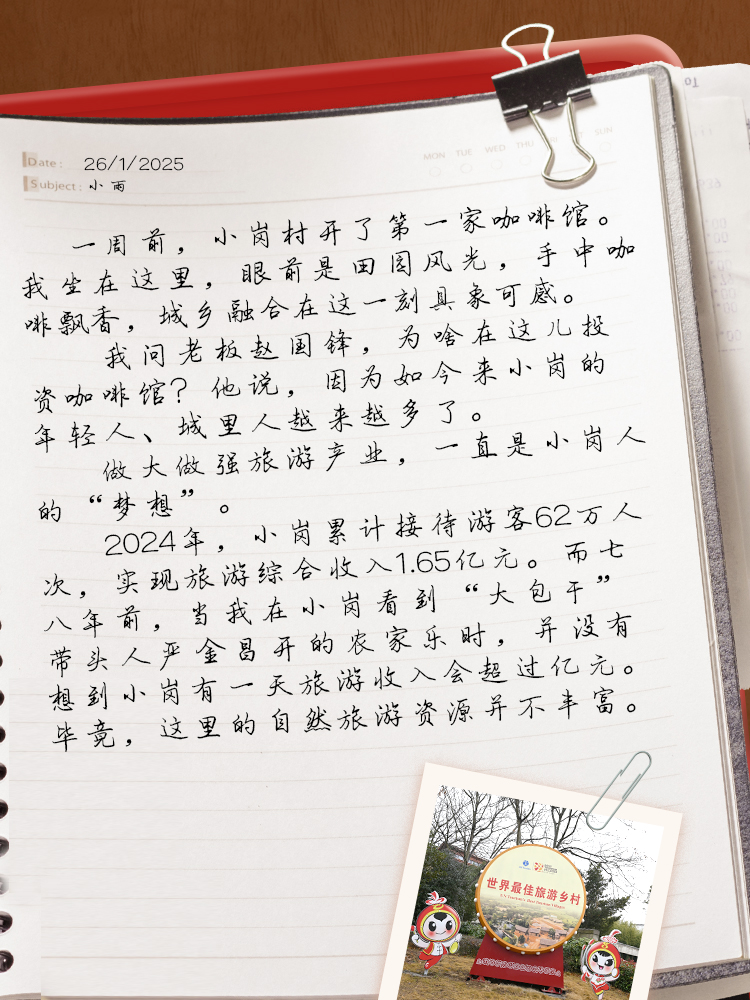 Date: 26/1/2025
MON TUE WED THU SUN
Subject: 小雨
To
一周前，小岗村开了第一家咖啡馆。
我坐在这里，眼前是田园风光，手中咖
啡飘香，城乡融合在这一刻具象可感。
我问老板赵国锋，为啥在这儿投
资咖啡馆？他说，因为如今来小岗的
年轻人、城里人越来越多了。
做大做强旅游产业，一直是小岗人
的“梦想”。
2024年，小岗累计接待游客62万人
次，实现旅游综合收入1.65亿元。而七
八年前，当我在小岗看到“大包干”
带头人严金昌开的农家乐时，并没有
想到小岗有一天旅游收入会超过亿元。
毕竟，这里的自然旅游资源并不丰富。
世界最佳旅游乡村